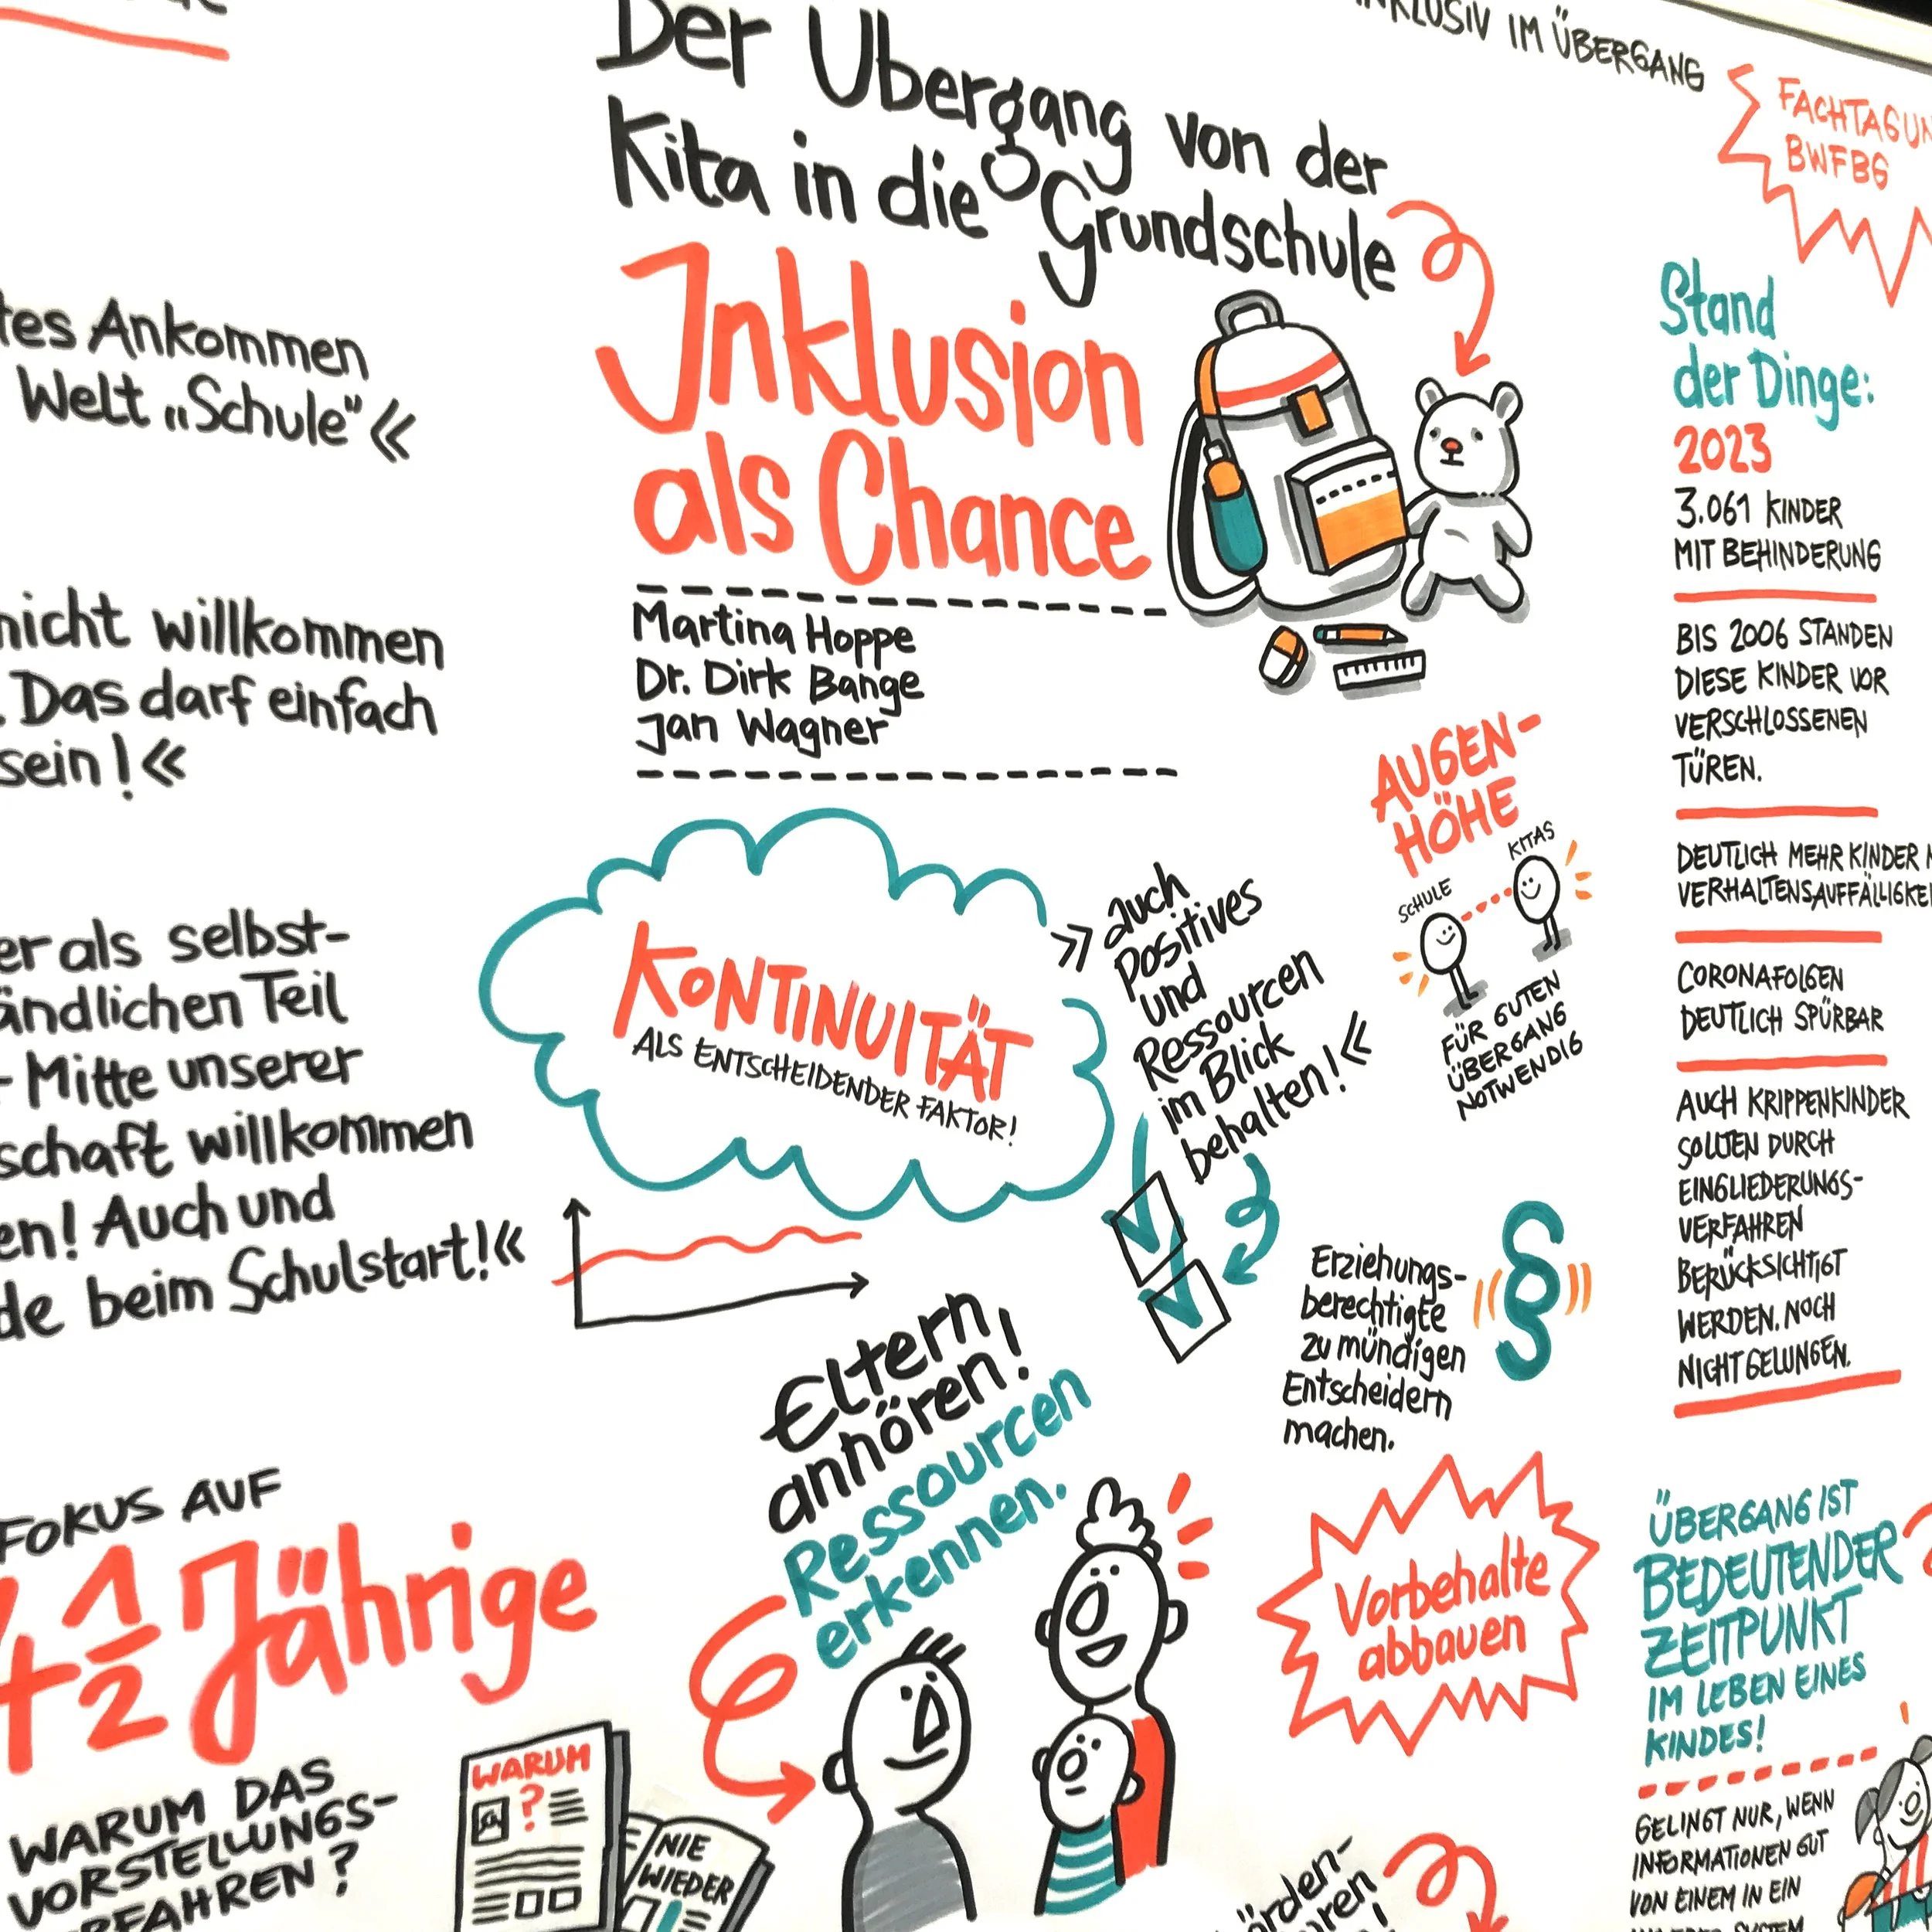 Der Übergang von der
Kita in die Grundschule
Inklusion
als Chance
Martina Hoppe
Dr. Dirk Bange
Jan Wagner
IM ÜBERGANG
BWFBG
Ankommen
Welt „Schule“«
nicht willkommen
. Das darf einfach
sein!«
als selbst-
Teil
- Mitte unserer
willkommen
Auch und
beim Schulstart!«
FOKUS AUF
4 1/2 Jährige
WARUM DAS
VORSTELLUNGS-
?
WARUM
?
NIE
WIEDER
KONTINUITÄT
ALS ENTSCHEIDENDER FAKTOR!
»auch
Positives
und
Ressourcen
im Blick
behalten!«
AUGEN-
HÖHE
SCHULE
KITAS
FÜR GUTEN
ÜBERGANG
NOTWENDIG
Eltern
anhören!
Ressourcen
erkennen.
Erziehungs-
berechtigte
zu mündigen
Entscheidern
machen.
§
Vorbehalte
abbauen
Stand
der Dinge:
2023
3.061 KINDER
MIT BEHINDERUNG
BIS 2006 STANDEN
DIESE KINDER VOR
VERSCHLOSSENEN
TÜREN.
DEUTLICH MEHR KINDER
CORONAFOLGEN
DEUTLICH SPÜRBAR
AUCH KRIPPENKINDER
SOLLTEN DURCH
EINGLIEDERUNGS-
VERFAHREN
BERÜCKSICHTIGT
WERDEN. NOCH
NICHT GELUNGEN.
ÜBERGANG IST
BEDEUTENDER
ZEITPUNKT
IM LEBEN EINES
KINDES!
GELINGT NUR, WENN
INFORMATIONEN GUT
VON EINEM IN EIN